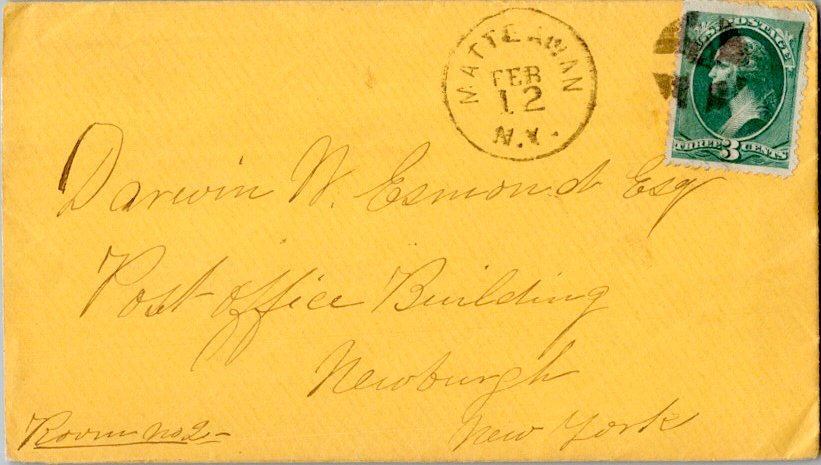 MATTEAWAN
FEB
12
N.Y.
U.S. POSTAGE
THREE 3 CENTS
Darwin W. Esmond Esq
Post office Building
Newburgh
New York
Room no 2